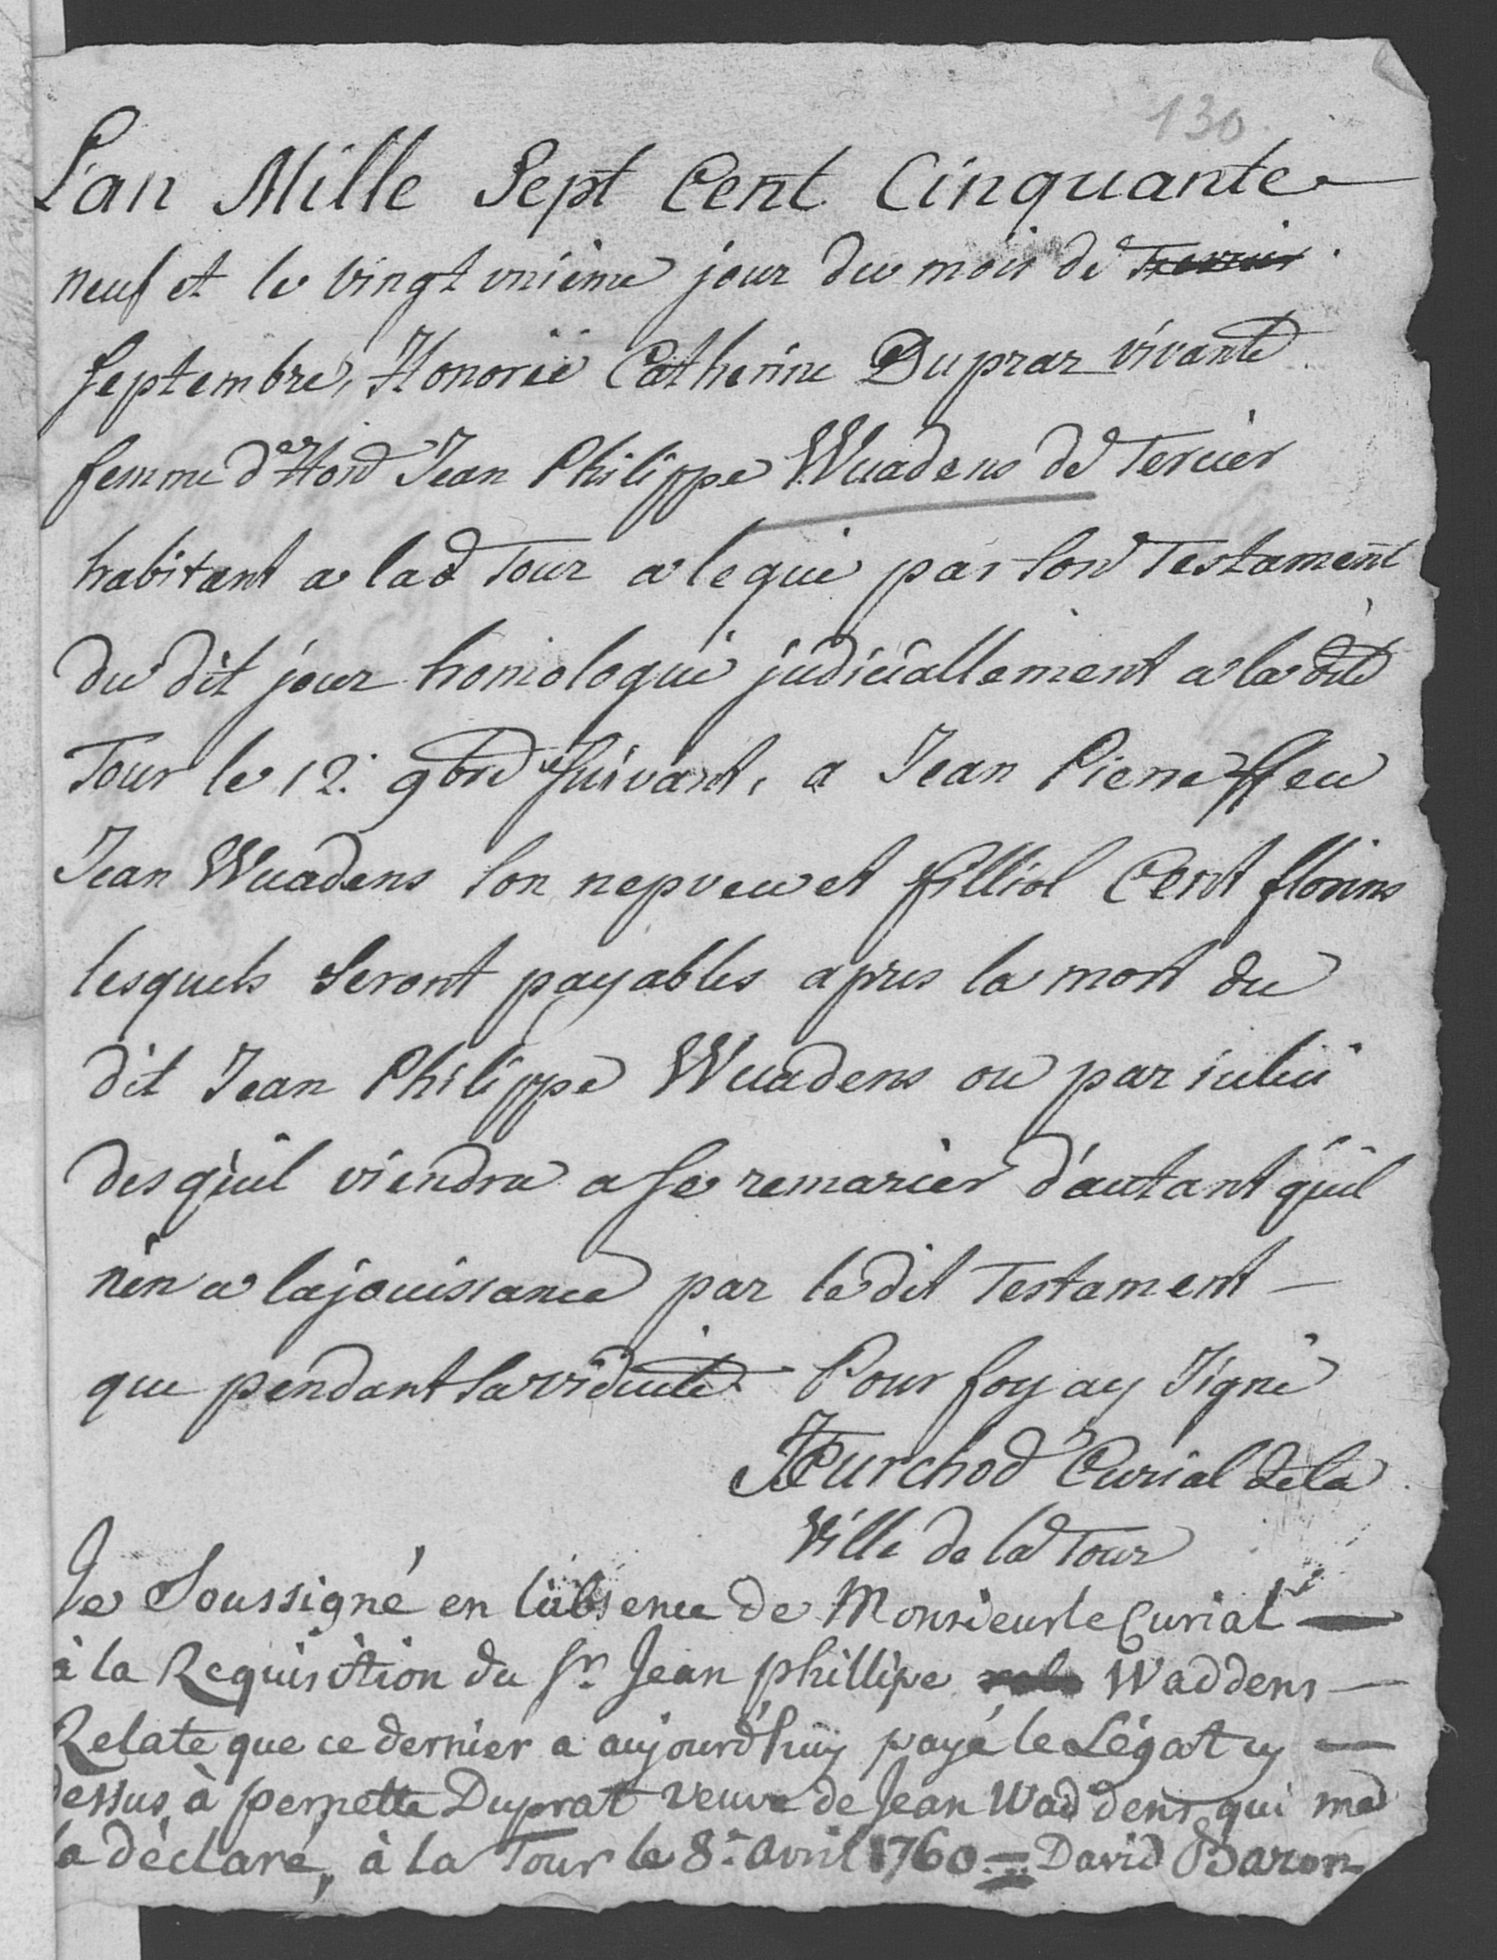 130
L'an Mille Sept Cent Cinquante
neuf et le vingt unieme jour du mois de
Septembre, Honorée Catherine Duprar vivante
femme d'Hon.d Jean Philippe Wuadens de Tercier
habitant a la d Tour a legué par son Testament
du dit jour homologué judiciallement a la dite
Tour le 12. 9bre suivant, a Jean Pierre ffeu
Jean Wuadens son nepveu et filliol Cent florins
lesquels seront payables apres la mort du
dit Jean Philippe Wuadens ou par iceluy
des qu'il viendra a se remarier d'autant qu'il
n'en a la jouissance par le dit Testament
que pendant sa viduité Pour foy ay Signé
Curchod Curial de la
Ville de la Tour
Je Soussigné en l'absence de Monsieur le Curial
à la Requisition du Sr. Jean phillipe Waddens
Relate que ce dernier a aujourd'huy payé le Légat cy
dessus à pernette Duprat veuve de Jean Waddens qui me
la déclaré, à la Tour le 8e avril 1760 = David Baron